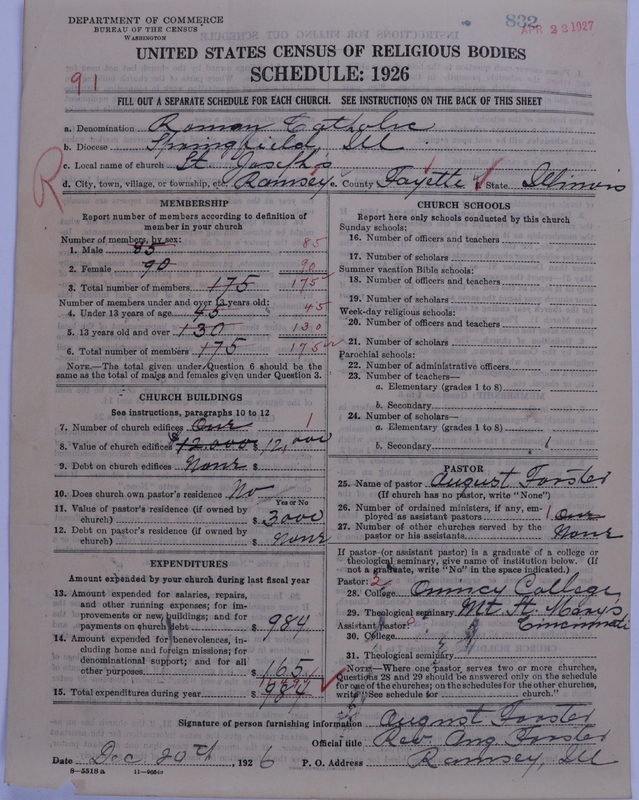 DEPARTMENT OF COMMERCE
BUREAU OF THE CENSUS
WASHINGTON
832
APR 22 1927
UNITED STATES CENSUS OF RELIGIOUS BODIES
SCHEDULE: 1926
91
FILL OUT A SEPARATE SCHEDULE FOR EACH CHURCH. SEE INSTRUCTIONS ON THE BACK OF THIS SHEET
a. Denomination Roman Catholic
b. Diocese Springfield, Ill
c. Local name of church St. Joseph's
d. City, town, village, or township, etc. Ramsey e. County Fayette f. State Illinois
R
MEMBERSHIP
Report number of members according to definition of
member in your church
Number of members, by sex:
1. Male 85 85
2. Female 90 90
3. Total number of members 175 175
Number of members under and over 13 years old:
4. Under 13 years of age 45 45
5. 13 years old and over 130 130
6. Total number of members 175 175
NOTE.—The total given under Question 6 should be the
same as the total of males and females given under Question 3.
CHURCH BUILDINGS
See instructions, paragraphs 10 to 12
7. Number of church edifices One 1
8. Value of church edifices $ 12,000 12,000
9. Debt on church edifices None $
10. Does church own pastor's residence No
Yes or No
11. Value of pastor's residence (if owned by
church) $ 3000
12. Debt on pastor's residence (if owned by
church) $ None
EXPENDITURES
Amount expended by your church during last fiscal year
13. Amount expended for salaries, repairs,
and other running expenses; for im-
provements or new buildings; and for
payments on church debt $ 984
14. Amount expended for benevolences, in-
cluding home and foreign missions; for
denominational support; and for all
other purposes $ 165
15. Total expenditures during year $ 984
CHURCH SCHOOLS
Report here only schools conducted by this church
Sunday schools:
16. Number of officers and teachers
17. Number of scholars
Summer vacation Bible schools:
18. Number of officers and teachers
19. Number of scholars
Week-day religious schools:
20. Number of officers and teachers
21. Number of scholars
Parochial schools:
22. Number of administrative officers
23. Number of teachers—
a. Elementary (grades 1 to 8)
b. Secondary
24. Number of scholars—
a. Elementary (grades 1 to 8)
b. Secondary
PASTOR
25. Name of pastor August Forster
(If church has no pastor, write "None")
26. Number of ordained ministers, if any, em-
ployed as assistant pastors 1 One
27. Number of other churches served by the
pastor or his assistants None
If pastor (or assistant pastor) is a graduate of a college or
theological seminary, give name of institution below. (If
not a graduate, write "No" in the space indicated.)
Pastor: 2
28. College Quincy College
29. Theological seminary Mt. St. Mary's
Assistant pastor: Cincinnati
30. College
31. Theological seminary
NOTE—Where one pastor serves two or more churches,
Questions 28 and 29 should be answered only on the schedule
for one of the churches; on the schedules for the other churches,
write "See schedule for church."
Signature of person furnishing information August Forster
Official title Rev. Aug. Forster
Date Dec 20th, 1926 P. O. Address Ramsey, Ill
8-5518a